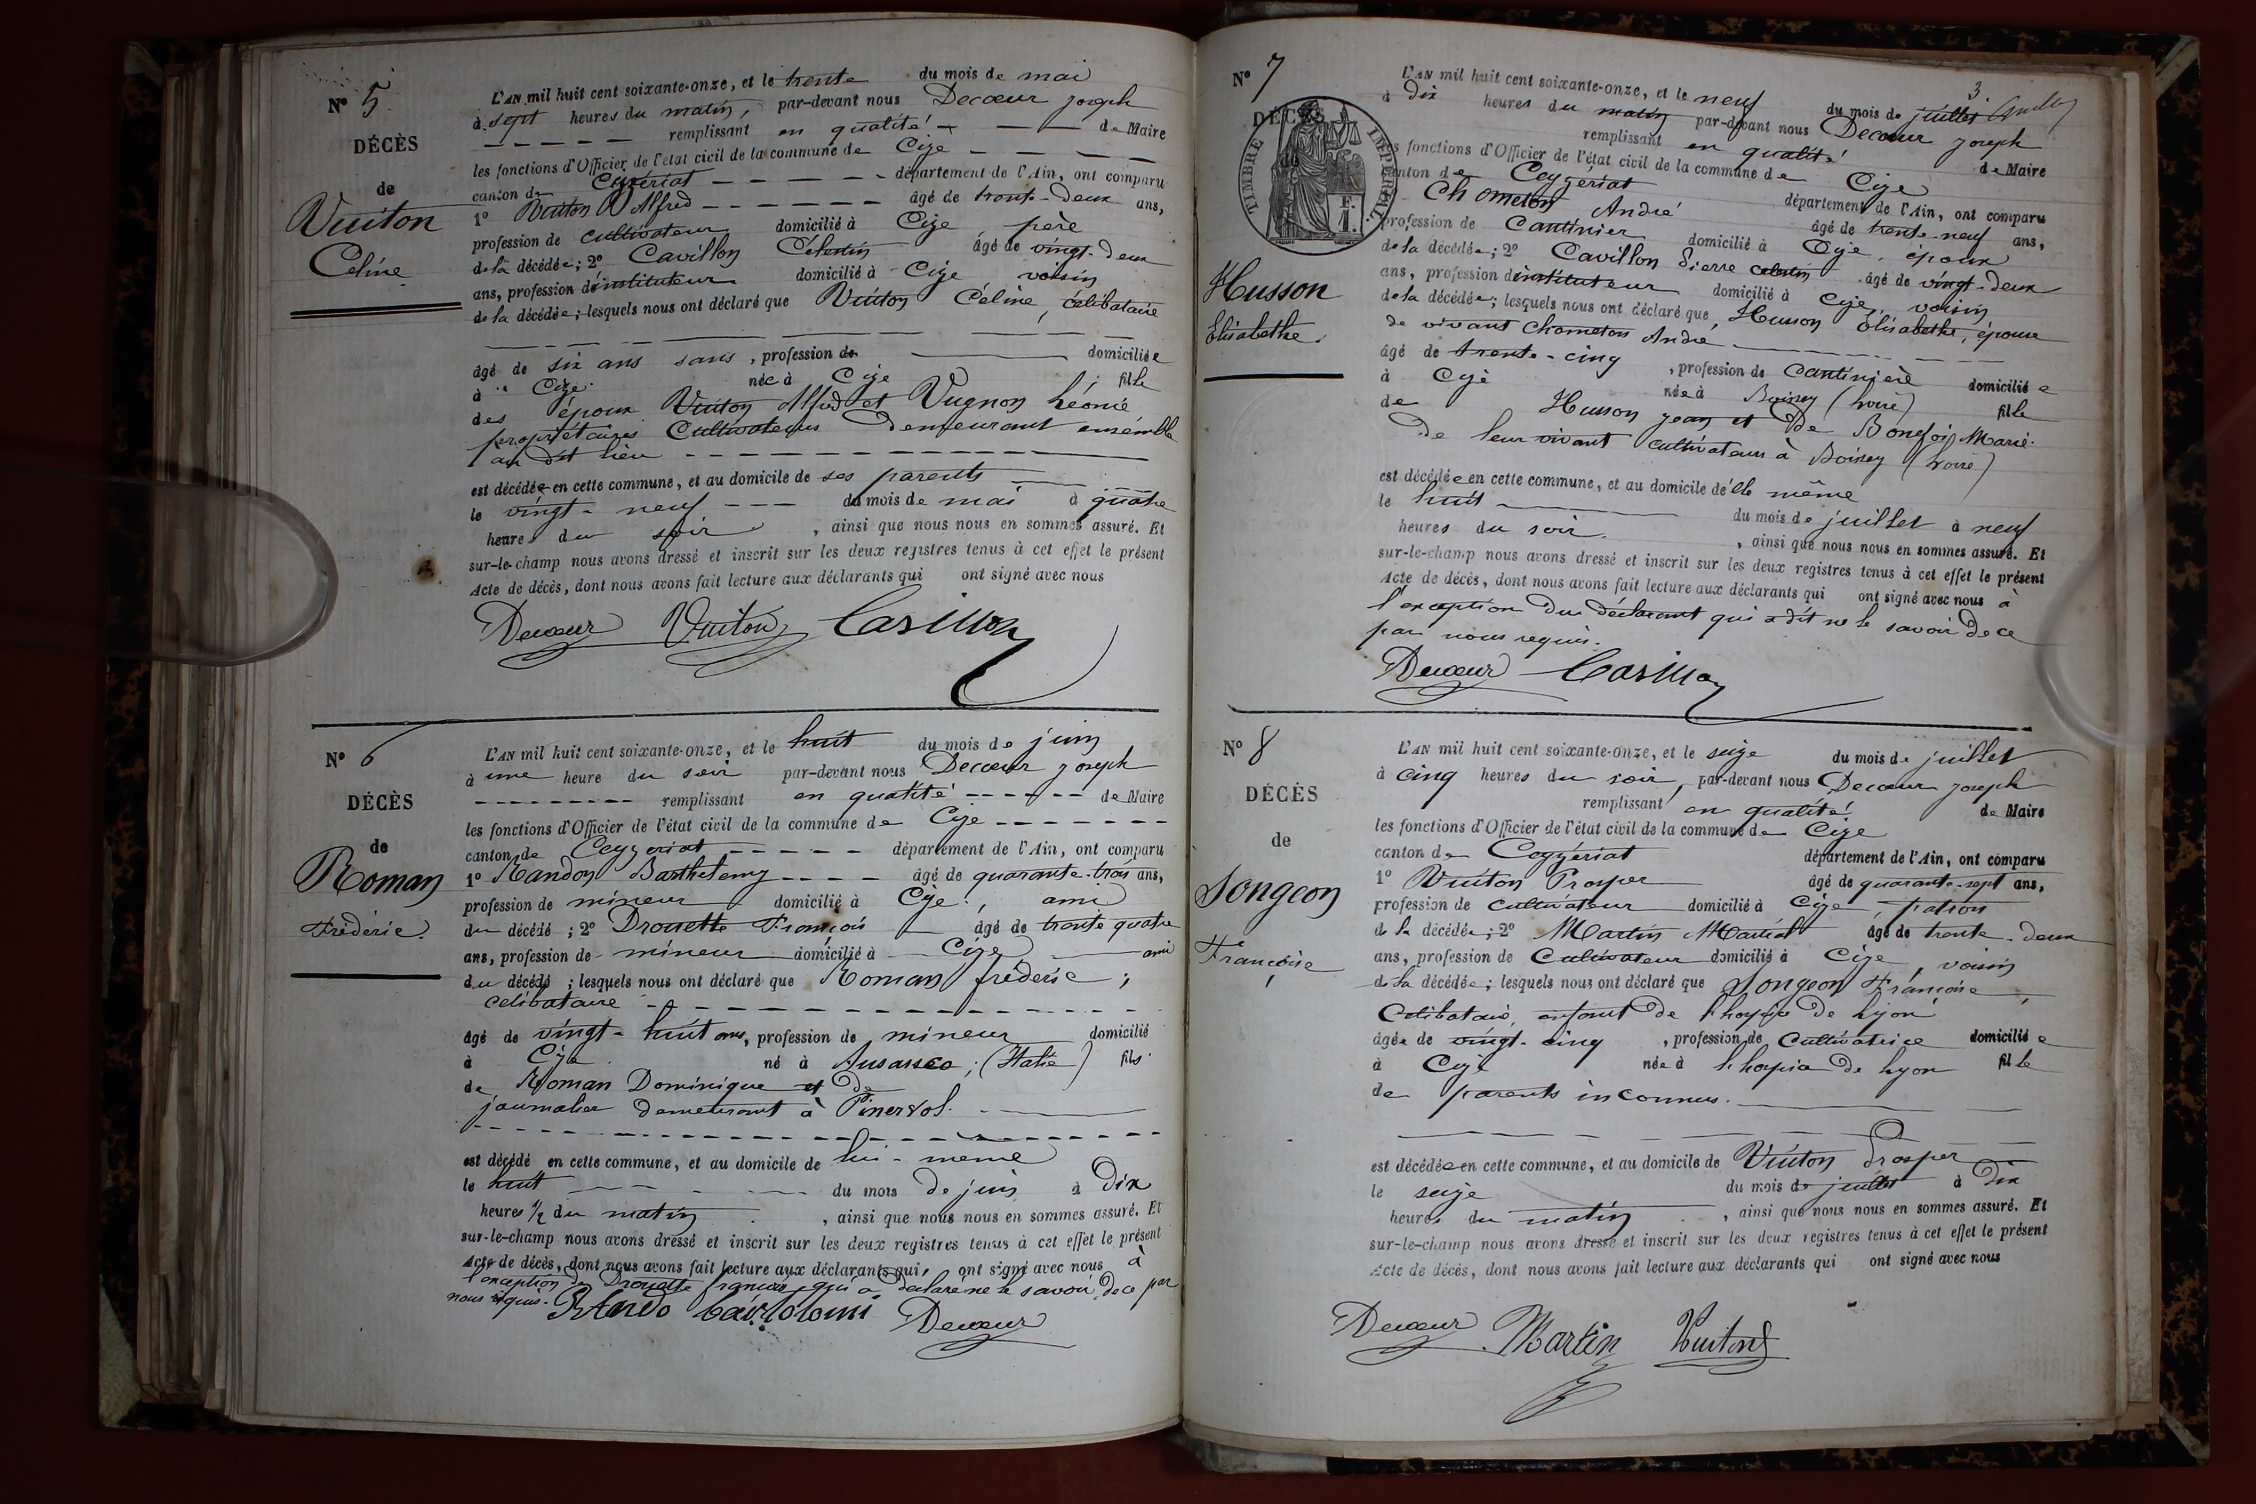 N° 5
DÉCÈS
de
Vuiton
Céline
L'AN mil huit cent soixante-onze, et le trente du mois de mai
à sept heures du matin, par-devant nous Decœur joseph
remplissant en qualité de Maire
les fonctions d'Officier de l'état civil de la commune de Cize
canton de Ceyzériat département de l'Ain, ont comparu
1° Vuiton Alfred âgé de trente-deux ans,
profession de cultivateur domicilié à Cize père
de la décédée; 2° Cavillon Célestin âgé de vingt-deux
ans, profession d'instituteur domicilié à Cize voisin
de la décédée; lesquels nous ont déclaré que Vuiton Céline, célibataire
âgé de six ans sans, profession de domiciliée
à Cize née à Cize fille
des époux Vuiton Alfred et Vugnon Léonie
propriétaires Cultivateurs demeurant ensemble
au dit lieu
est décédée en cette commune, et au domicile de ses parents
le vingt-neuf du mois de mai à quatre
heures du soir, ainsi que nous nous en sommes assuré. Et
sur-le-champ nous avons dressé et inscrit sur les deux registres tenus à cet effet le présent
Acte de décès, dont nous avons fait lecture aux déclarants qui ont signé avec nous
Decœur Vuiton Cavillon
N° 6
DÉCÈS
de
Roman
Fréderic.
L'AN mil huit cent soixante-onze, et le huit du mois de juin
à une heure du soir par-devant nous Decœur joseph
remplissant en qualité de Maire
les fonctions d'Officier de l'état civil de la commune de Cize
canton de Ceyzeriat département de l'Ain, ont comparu
1° Randon Barthelemy âgé de quarante-trois ans,
profession de mineur domicilié à Cize, ami
du décédé; 2° Drouette François âgé de trente quatre
ans, profession de mineur domicilié à Cize ami
du décédé; lesquels nous ont déclaré que Roman fréderic;
célibataire
âgé de vingt-huit ans, profession de mineur domicilié
à Cize né à (Italie) fils
de Roman Dominique et de
journalier demeurant à Pinerol.
est décédé en cette commune, et au domicile de lui-même
le huit du mois de juin à dix
heures 1/2 du matin, ainsi que nous nous en sommes assuré. Et
sur-le-champ nous avons dressé et inscrit sur les deux registres tenus à cet effet le présent
Acte de décès, dont nous avons fait lecture aux déclarants qui, ont signé avec nous à
l'exception de Drouette françois qui a déclaré ne le savoir de ce par
nous requis. Decœur
N° 7
DÉCÈS
de
TIMBRE IMPÉRIAL
F.
1.
Husson
Elisabethe.
3.
L'AN mil huit cent soixante-onze, et le neuf du mois de juillet
à dix heures du matin par-devant nous Decœur joseph
remplissant en qualité de Maire
les fonctions d'Officier de l'état civil de la commune de Cize
canton de Ceyzériat département de l'Ain, ont comparu
Chometon André âgé de trente-neuf ans,
profession de Cantinier domicilié à Cize, époux
de la décédée; 2° Cavillon Pierre Celestin âgé de vingt-deux
ans, profession d'instituteur domicilié à Cize, voisin
de la décédée; lesquels nous ont déclaré que, Husson Elisabethe, épouse
de vivant Chometon André
âgé de trente-cinq, profession de Cantinière domiciliée
à Cize née à (Loire) fille
de Husson jean et de Bonefoi Marie.
de leur vivant cultivateurs à (Loire)
est décédée en cette commune, et au domicile d'elle même
le huit du mois de juillet à neuf
heures du soir, ainsi que nous nous en sommes assuré. Et
sur-le-champ nous avons dressé et inscrit sur les deux registres tenus à cet effet le présent
Acte de décès, dont nous avons fait lecture aux déclarants qui ont signé avec nous à
l'exception du déclarant qui a dit ne le savoir de ce
par nous requis.
Decœur Cavillon
N° 8
DÉCÈS
de
Songeon
Françoise
L'AN mil huit cent soixante-onze, et le seize du mois de juillet
à cinq heures du soir, par-devant nous Decœur joseph
remplissant en qualité de Maire
les fonctions d'Officier de l'état civil de la commune de Cize
canton de Ceyzériat département de l'Ain, ont comparu
1° Vuiton Prosper âgé de quarante-sept ans,
profession de cultivateur domicilié à Cize, patron
de la décédée; 2° Martin Martial âgé de trente-deux
ans, profession de Cultivateur domicilié à Cize, voisin
de la décédée; lesquels nous ont déclaré que Songeon Françoise,
Célibataire, enfant de l'hospice de Lyon
âgée de vingt-cinq, profession de Cultivatrice domiciliée
à Cize née à l'hospice de Lyon fille
de parents inconnus.
est décédée en cette commune, et au domicile de Vuiton Prosper
le seize du mois de juillet à dix
heures du matin, ainsi que nous nous en sommes assuré. Et
sur-le-champ nous avons dressé et inscrit sur les deux registres tenus à cet effet le présent
Acte de décès, dont nous avons fait lecture aux déclarants qui ont signé avec nous
Decœur Martin Vuiton